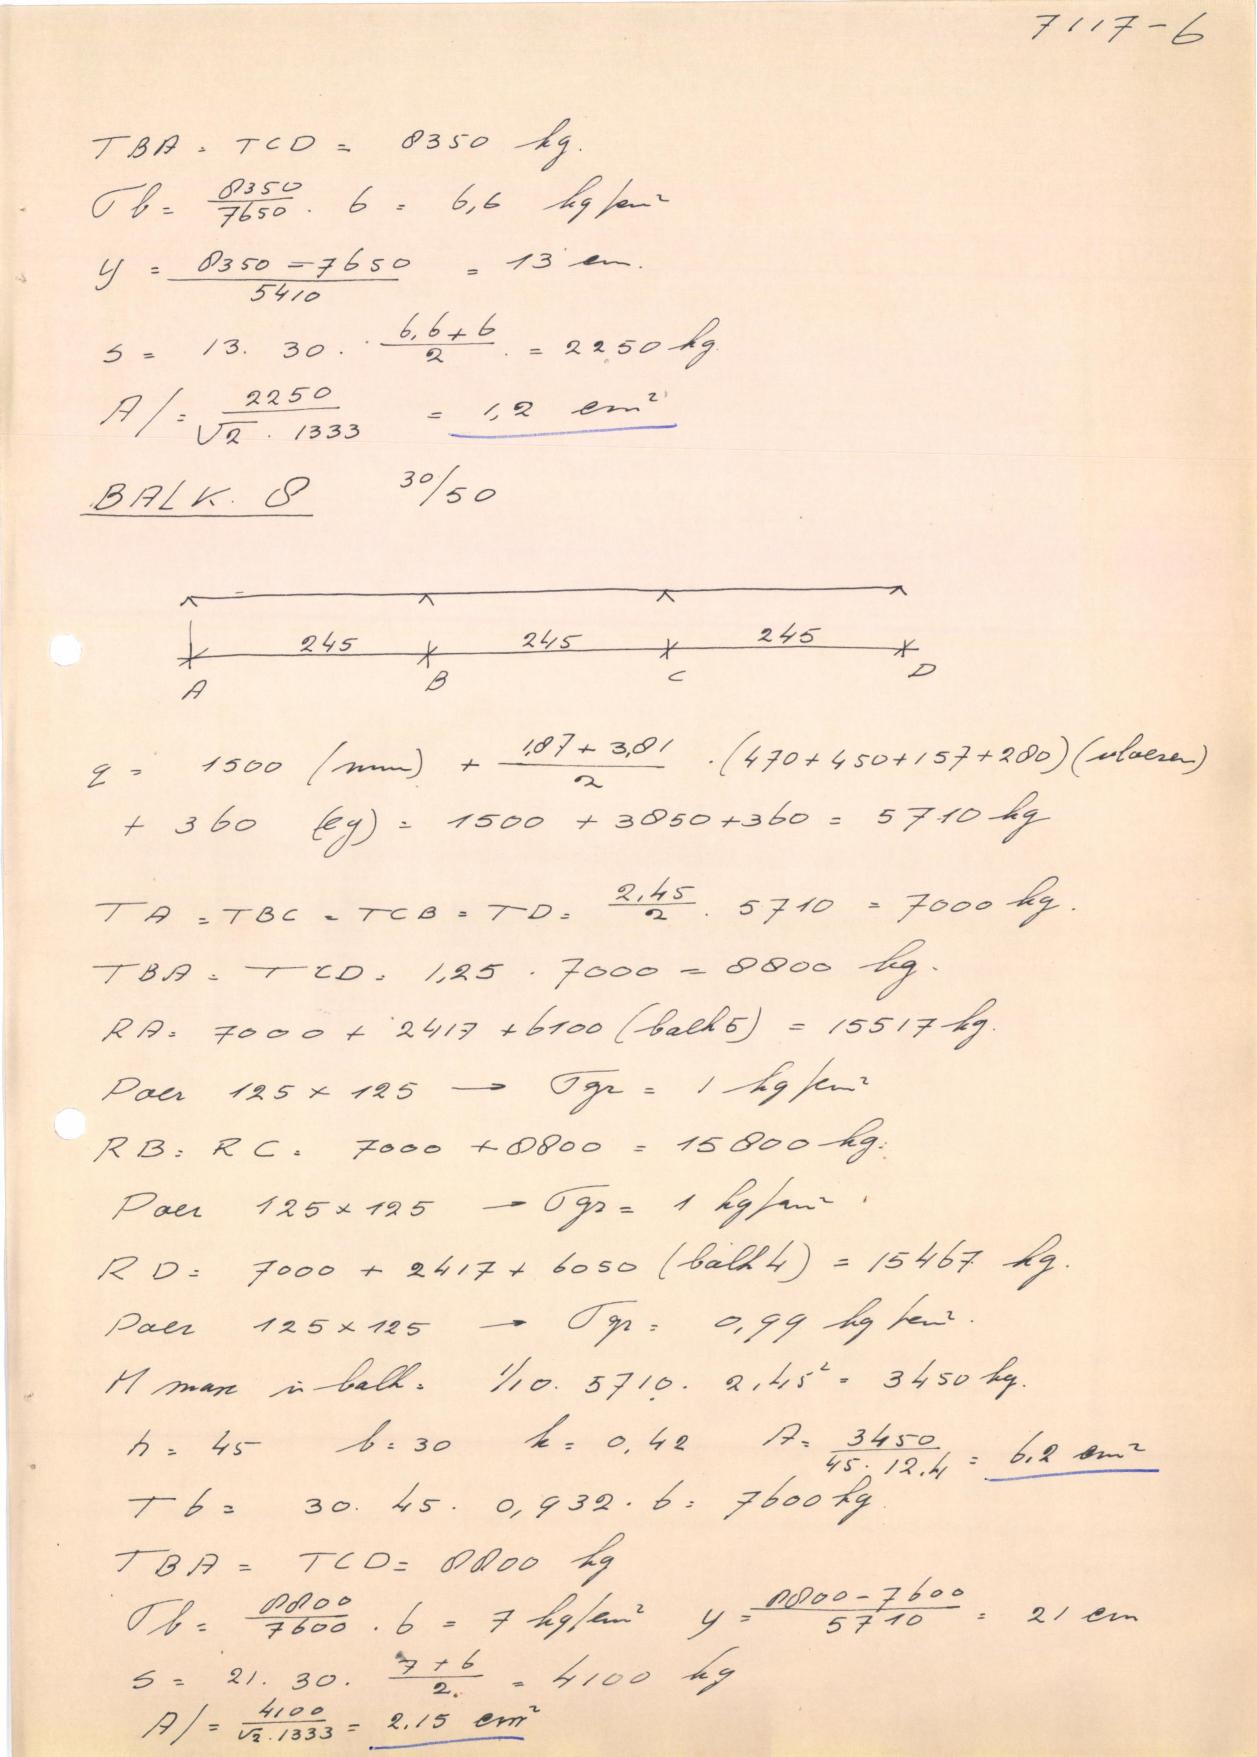 7117-6
TBA = TCD = 8350 kg.
σb = 8350/7650 . 6 = 6,6 kg/cm²
y = (8350 - 7650)/5410 = 13 cm.
S = 13. 30. (6,6 + 6)/2 = 2250 kg
A/ = 2250/(√2 . 1333) = 1,2 cm²
BALK. 8 30/50
245 245 245
A B C D
q = 1500 (muur) + (1,87 + 3,81)/2 . (470+450+157+280) (vloeren)
+ 360 (eg) = 1500 + 3850+360 = 5710 kg
TA = TBC = TCB = TD = 2,45/2 . 5710 = 7000 kg.
TBA = TCD = 1,25 . 7000 = 8800 kg.
RA = 7000 + 2417 + 6100 (balk 5) = 15517 kg.
Poer 125 x 125 → σgr = 1 kg/cm²
RB = RC = 7000 + 8800 = 15800 kg.
Poer 125 x 125 → σgr = 1 kg/cm²
RD = 7000 + 2417 + 6050 (balk 4) = 15467 kg.
Poer 125 x 125 → σgr = 0,99 kg/cm².
M max in balk = 1/10. 5710. 2,45² = 3450 kg.
h = 45 b = 30 k = 0,42 A = 3450/(45. 12,4) = 6,2 cm²
Tb = 30. 45. 0,932. 6 = 7600 kg.
TBA = TCD = 8800 kg
σb = 8800/7600 . 6 = 7 kg/cm² y = (8800 - 7600)/5710 = 21 cm
S = 21. 30. (7 + 6)/2. = 4100 kg
A/ = 4100/(√2 . 1333) = 2,15 cm²